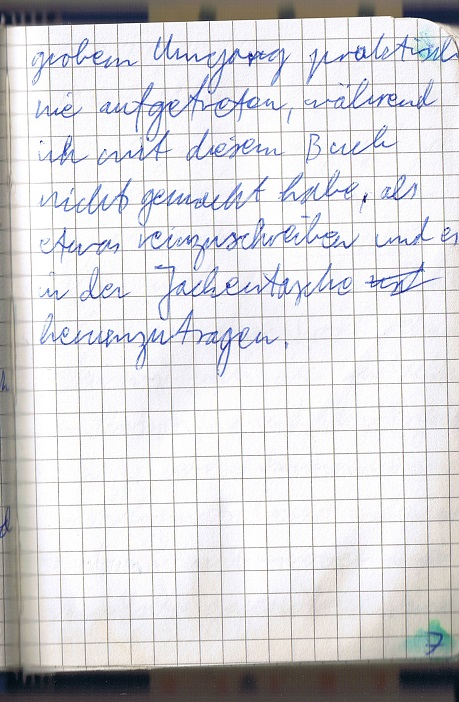 grobem Umgang praktisch
nie aufgetreten, während
ich mit diesem Buch
nicht gemacht habe, als
etwas reinzuschreiben und es
in der Jackentasche
herumzutragen.
7